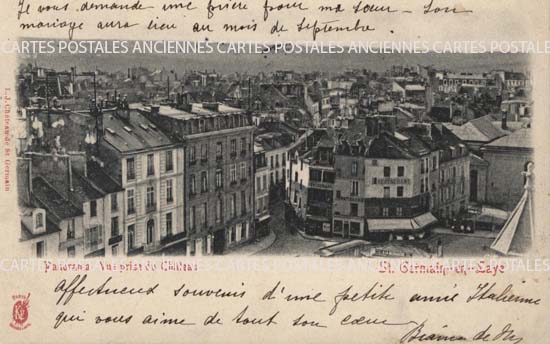 Je vous demande une prière pour ma sœur — Son
mariage aura lieu au mois de Septembre.
CARTES POSTALES ANCIENNES CARTES POSTALES ANCIENNES CARTES POSTALES ANCIENNES
CARTES POSTALES ANCIENNES CARTES POSTALES ANCIENNES CARTES POSTALES ANCIENNES
Panorama Vue prise du Château
St. Germain-en-Laye
Affectueux souvenir d'une petite amie Italienne
qui vous aime de tout son cœur
de
Château de St Germain